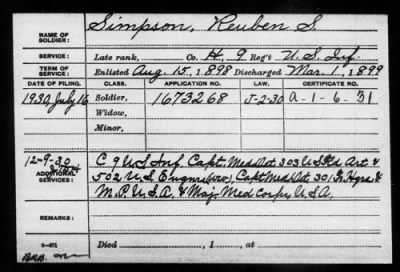 NAME OF SOLDIER: Simpson, Reuben S.
SERVICE: Late rank, Co. H, 9 Reg't U.S. Inf.
TERM OF SERVICE: Enlisted Aug. 15, 1898 Discharged Mar. 1, 1899
DATE OF FILING. CLASS. APPLICATION NO. LAW. CERTIFICATE NO.
1930 July 16 Soldier, 1673268 J-2-30 A-1-6-31
Widow,
Minor,
12-9-30 C 9 U S Inf. Capt. Med Det 303 U S Fld Art &
ADDITIONAL SERVICES: 502 U.S. Engrs (svc), Capt Med Det. 301 Tr. Hqrs &
M.P. U.S.A. & Maj. Med Corps U.S.A.
REMARKS:
Died , 1 , at